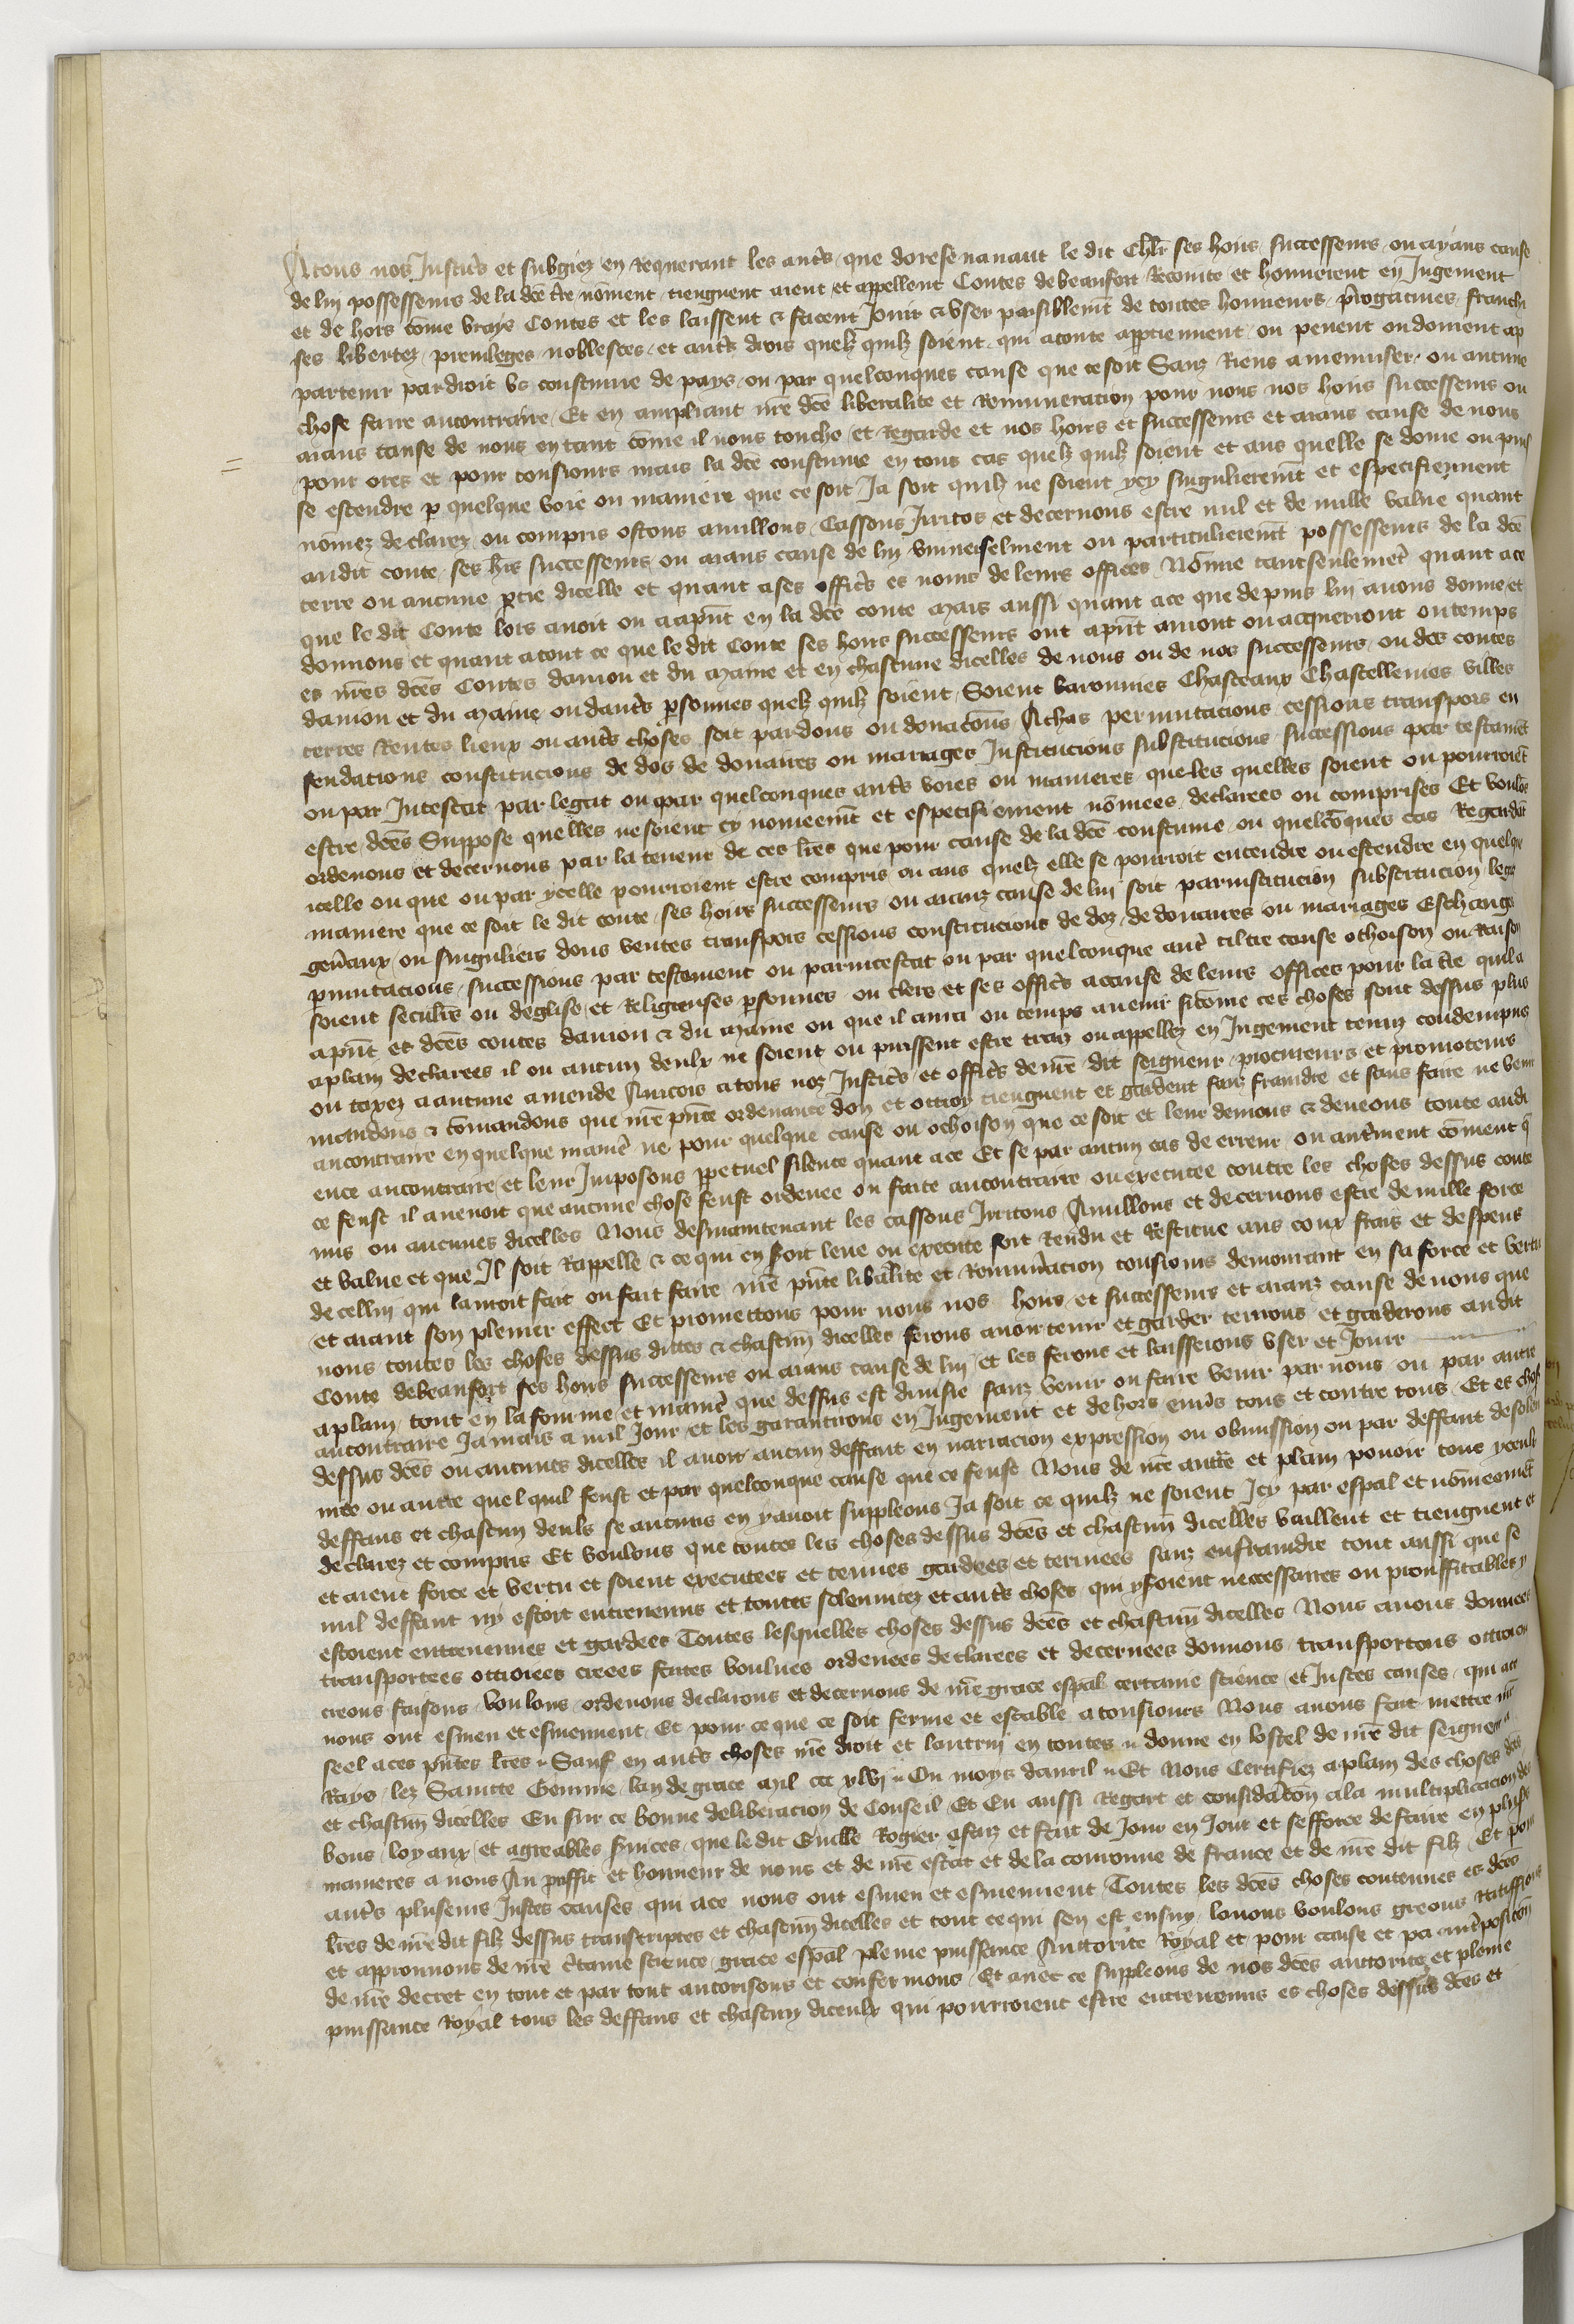 A tous nos Justic̄s et subgiez en requerant les autr̄s que doresenavant le dit Chlr̄ ses hoirs successeurs ou ayans cause
de lui possesseurs de la dc̄e tr̄e nōment tiengnent aient et appellent Contes de beaufort Recomte et honneurent en Jugement
et de hors cōme vrays Contes et les laissent & facent Jouir & vser paisiblemēt de toutes honneurs p̄rogatiues franchi
ses libertez preuileges noblesces et autr̄s drois quelz quilz soient qui a conte app̄tiennent ou peuent ou doiuent ap
partenir par droit vs coustume de pays ou par quelconques cause que ce soit Sanz Riens amenuiser ou aucune
chose faire aucontraire Et en ampliant nr̄e dc̄e liberalite et Remuneracion pour nous nos hoirs successeurs ou
aians cause de nous en tant cōme il nous touche et Regarde et nos hoirs et successeurs et aians cause de nous
pour ores et pour tousiours mais la dc̄e coustume en tous cas quelz quilz soient et aus quelle se doiue ou puis
se estendre p̄ quelque voie ou maniere que ce soit Ja soit quilz ne soient ycy singulieremēt et especifiement
nōmez declarez ou compris ostons anullons Cassons Jrritos et decernons estre nul et de nulle value quant
audit conte ses hr̄s successeurs ou aians cause de lui vniuerselment ou particulieremēt possesseurs de la dc̄e
terre ou aucune p̄tie dicelle et quant a ses offic̄s es noms de leurs offices Nōmie tantseulemēt quant a ce
que le dit Conte lors auoit ou a ap̄nt en la dc̄e conte mais aussi quant a ce que depuis lui auons donne et
donnons et quant a tout ce que le dit Conte ses hoirs successeurs ont ap̄nt auront ou acquerront ou temps
es nr̄es dc̄es Contes daniou et du maine et en chascune dicelles de nous ou de nos successeurs ou des contes
daniou et du maine ou dautr̄s p̄sonnes quelz quilz soient Soient baronnies Chasteaux Chastellenies villes
terres Rentes lieux ou autr̄s choses soit par dons ou donacōns Achas permutacions cessions transpors en
feudacions constitucions de dos de douaires ou mariages Institucions substitucions successions par testamēt
ou par Intestat par legat ou par quelconques autr̄s voies ou manieres queles quelles soient ou pourroiēt
estre dc̄es Suppose quelles ne soient cy nomeemēt et especifiement nōmees declarees ou comprises Et voulōs
ordenons et decernons par la teneur de ces lr̄es que pour cause de la dc̄e coustume ou quelcōques cas Regardāt
icelle ou que ou par ycelle pourroient estre compris ou aus quelz elle se pourroit entendre ou estendre en quelque
maniere que ce soit le dit conte ses hoirs successeurs ou aianz cause de lui soit par institucion substitucion legas
gen̄aux ou singuliers dons ventes transpors cessions constitucions de doz de douaires ou mariages Eschange
p̄mutacions successions par testament ou par intestat ou par quelconque autr̄ tiltre cause ochoison ou Raison
soient seculr̄s ou deglise et Religieuses p̄sonnes ou clers et ses offic̄s a cause de leurs offices pour la tr̄e quil a
ap̄nt et dc̄es contes daniou & du maine ou que il aura ou temps auenir sicōme ces choses sont dessus plus
aplain declarees il ou aucun deulx ne soient ou puissent estre traiz ou appellez en Jugement tenuz condempnez
ou taxez a aucune amende Aincois a tous noz Justic̄s et offic̄s de nr̄e dit seigneur procureurs et promoteurs
mandons & cōmandons que nr̄e p̄nte ordenance don et ottroy tiengnent et gardent sanz fraindre et sans faire ne venir
aucontraire en quelque manir̄ ne pour quelque cause ou ochoison que ce soit et leur denions & deueons toute audi
ence aucontraire et leur Jmposons p̄petuel silence quant a ce Et se par aucun cas de erreur ou autr̄ment cōment q̄
ce feust il auenoit que aucune chose feust ordenee ou faite aucontraire ou executee contre les choses dessus conte
nues ou aucunes dicelles Nous desmaintenant les cassons Jrritons Anullons et decernons estre de nulle force
et value et que Jl soit Rappelle & ce qui en soit leue ou execute soit Rendu et Restitue aus coux frais et despens
de cellui qui lauroit fait ou fait faire nr̄e p̄nte libalite et Remun̄acion tousiours demourant en sa force et vertu
et aiant son plenier effect Et promettons pour nous nos hoirs et successeurs et aianz cause de nous que
nous toutes les choses dessus dittes & chascun dicelles ferons auoir tenir et garder tenrons et garderons audit
Conte de beaufort ses hoirs successeurs ou aians cause de lui et les ferons et laisserons vser et Jouir
aplain tout en la fourme et manir̄ que dessus est diuisie sanz venir ou faire venir par nous ou par autre
aucontraire Jamais a nul Jour et les garantirons en Jugement et dehors enu̇s tous et contre tous Et es chos
dessus dc̄es ou aucunes dicelles il auoit aucun deffaut en narracion expression ou obmission ou par deffaut de solen
nite ou autre quel quil feust et par quelconque cause que ce feust Nous de nr̄e auttr̄e et plain pouoir tous yceulx
deffaus et chascun deuls se aucuns en y auoit suppleons Ja soit ce quilz ne soient Jcy par esp̄al et nōmeemēt
declarez et compris Et voulons que toutes les choses dessus dc̄es et chascun̄ dicelles vaillent et tiengnent et
et aient force et vertu et soient executees et tenues gardees et terinees sanz enfraindre tout aussi que se
nul deffaut ny estoit entreuenus et toutes solennitez et autr̄s choses qui y soient neccessaires ou prouffitables y
estoient entreuenues et gardees Toutes lesquelles choses dessus dc̄es et chascun̄ dicelles Nous auons donnees
transportees ottroiees creees faites voulues ordenees declarees et decernees donnons transportons ottroions
creons faisons voulons ordenons declarons et decernons de nr̄e grace esp̄al certaine science et Justes causes qui a ce
nous ont esmeu et esmeuuent Et pour ce que ce soit ferme et estable a tousiours Nous auons fait mettre nr̄e
seel a ces p̄ntes lr̄es Sauf en autr̄s choses nr̄e droit et lautrui en toutes donne en lostel de nr̄e dit seigneur a
Rays lez Saincte Gemme lan de grace mil ccc xlvj Ou moys dauril Et Nous Certifiez aplain des choses dc̄es
et chascun̄ dicelles Eu sur ce bonne deliberacion de Conseil Et Eu aussi Regart et consid̄acōn a la multiplicacion des
bons loyaux et agreables s̄uices que ledit Guille Rogier a faiz et fait de Jour en Jour et sefforce de faire en plus̄s
manieres a nous Au prouffit et honneur de nous et de nr̄e estat et de la couronne de france et de nr̄e dit filz Et pour
autr̄s pluseurs Justes causes qui a ce nous ont esmeu et esmeuuent Toutes les dc̄es choses contenues es dc̄es
lr̄es de nr̄e dit filz dessus transcriptes et chascun̄ dicelles et tout ce qui sen est ensuy louons voulons greons Ratiffions
et approuuons de nr̄e c̄taine science grace esp̄al pleine puissance Auttorite Royal et pour cause et par int̄posicōn
de nr̄e decret en tout et par tout autorisons et confermons Et auec ce suppleons de nos dc̄es auttorite et pleine
puissance Royal tous les deffaus et chascun diceulx qui pourroient estre entreuenus es choses dessus dc̄es et